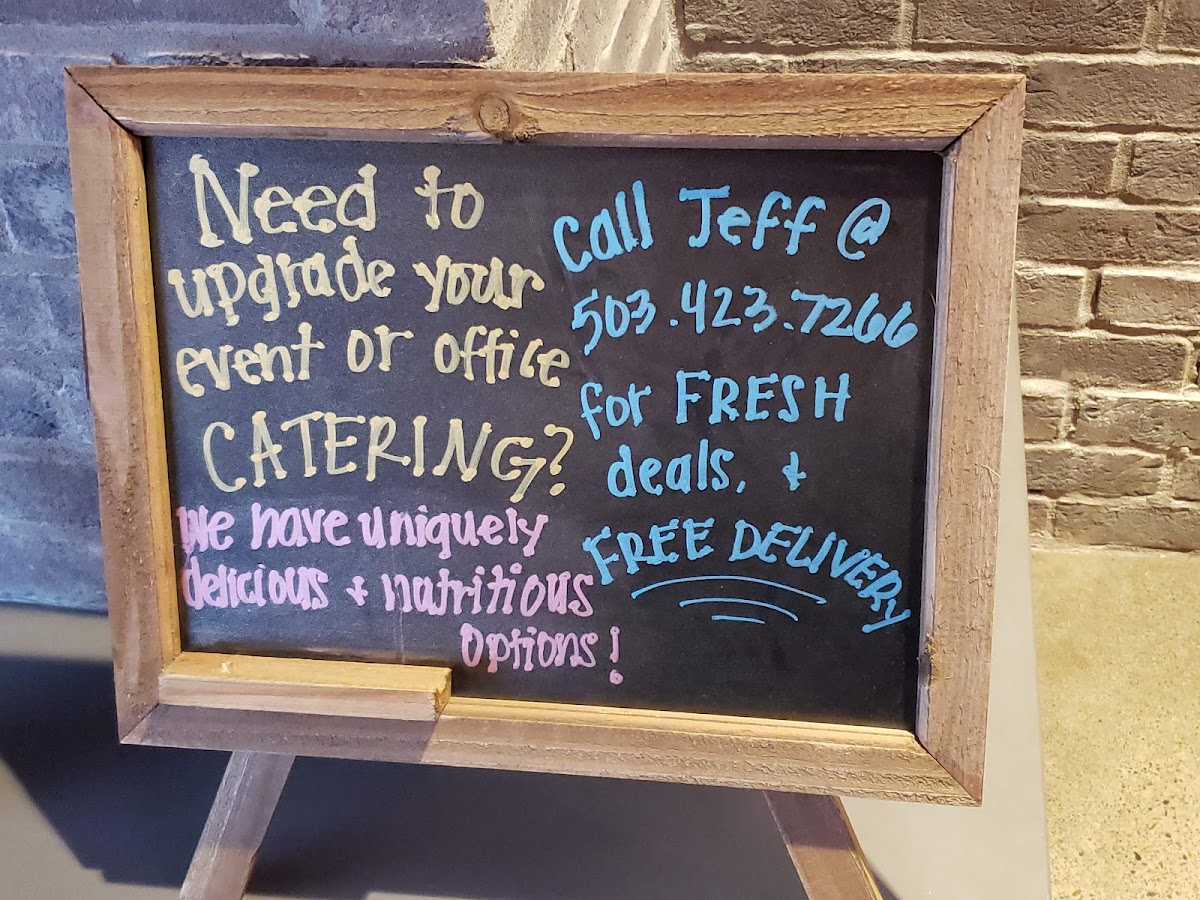 Need to
upgrade your
event or office
CATERING?
We have uniquely
delicious + nutritious
options!
Call Jeff @
503.423.7266
for FRESH
deals, +
FREE DELIVERY